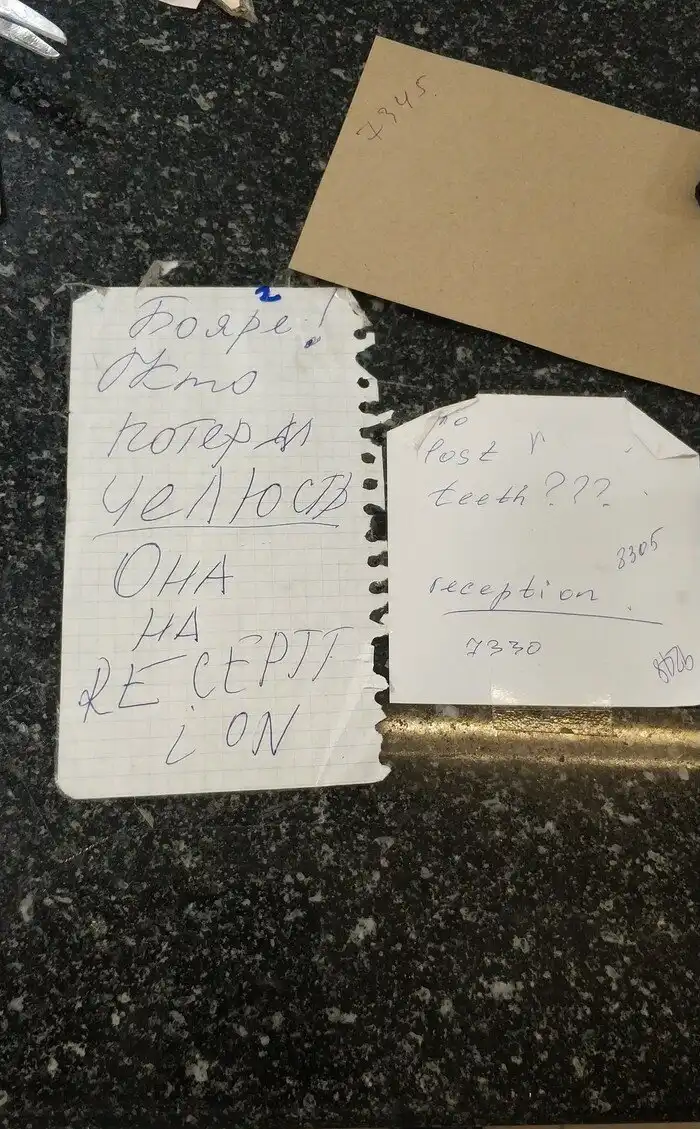 7345.
2
Бояре!
Кто
потерял
челюсть
Она
на
RECEPTI
iON
Lost
teeth???
8305
reception
7330